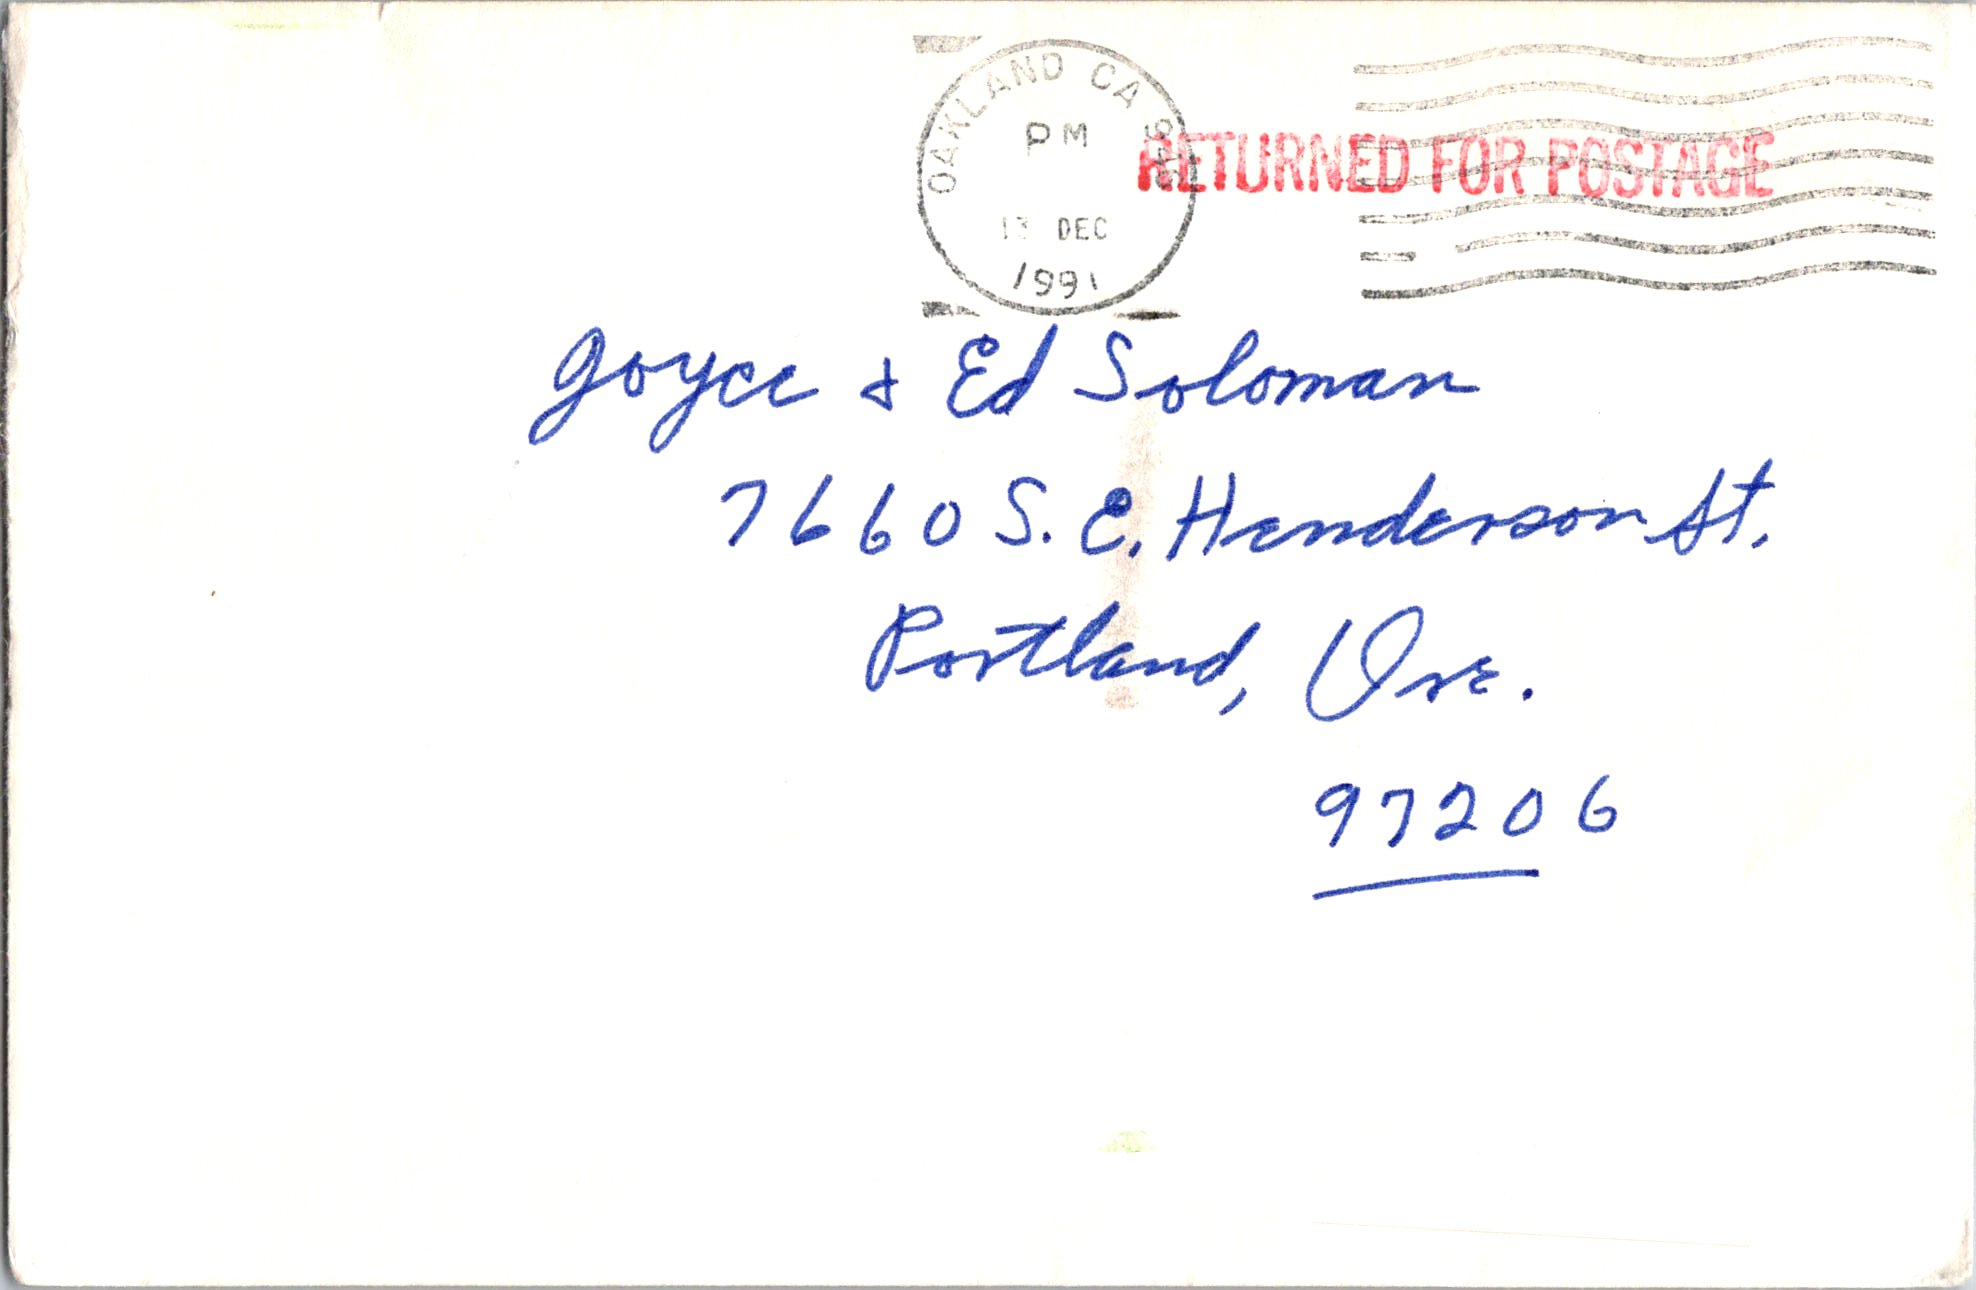 OAKLAND CA
PM
13 DEC
1991
RETURNED FOR POSTAGE
Joyce & Ed Soloman
7660 S. E. Henderson St.
Portland, Ore.
97206